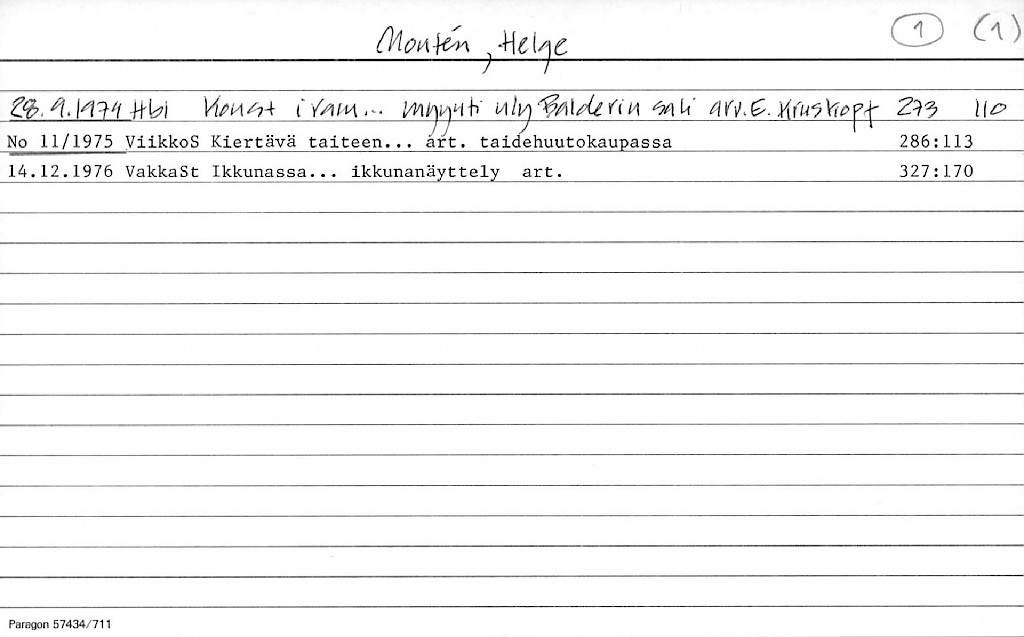 Montén, Helge 1 (1)
28.9.1974 Hbl Konst i ram... myynti näy Balderin sali arv. E. Kruskopf 273 110
No 11/1975 ViikkoS Kiertävä taiteen... art. taidehuutokaupassa 286:113
14.12.1976 VakkaSt Ikkunassa... ikkunanäyttely art. 327:170
Paragon 57434/711